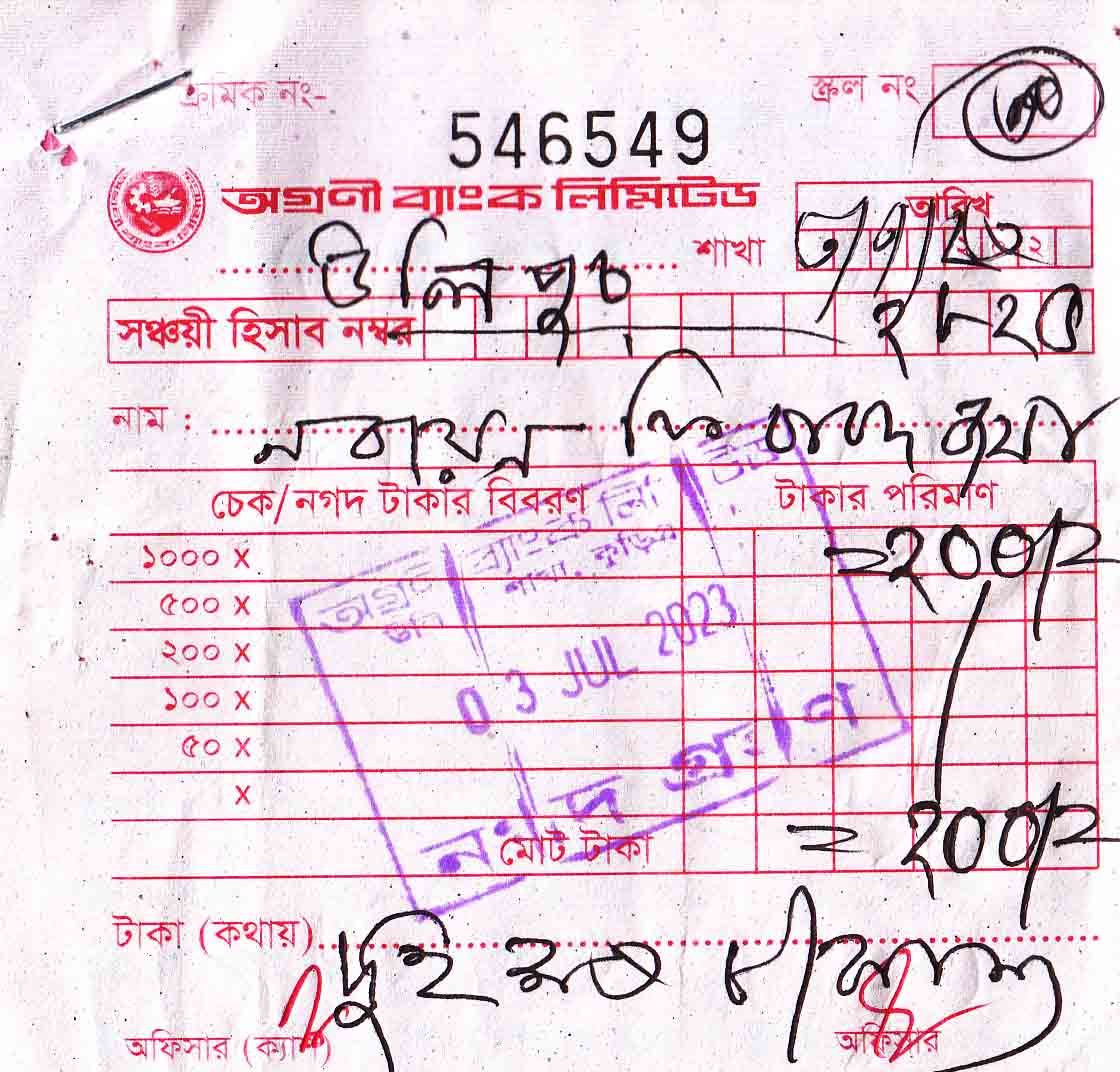 ক্রমিক নং- স্ক্রল নং
546549
অগ্রণী ব্যাংক লিমিটেড তারিখ
উলিপুর শাখা
সঞ্চয়ী হিসাব নম্বর ২৮২৪
নাম :
চেক/নগদ টাকার বিবরণ টাকার পরিমাণ
১০০০ X =২০০/=
৫০০ X
২০০ X
১০০ X
৫০ X
X
মোট টাকা =২০০/=
টাকা (কথায়) দুই শত টাকা মাত্র
অফিসার (ক্যাশ) অফিসার
অগ্রণী ব্যাংক লিঃ
শাখা, কুড়িগ্রাম
03 JUL 2023
নগদ গ্রহণ